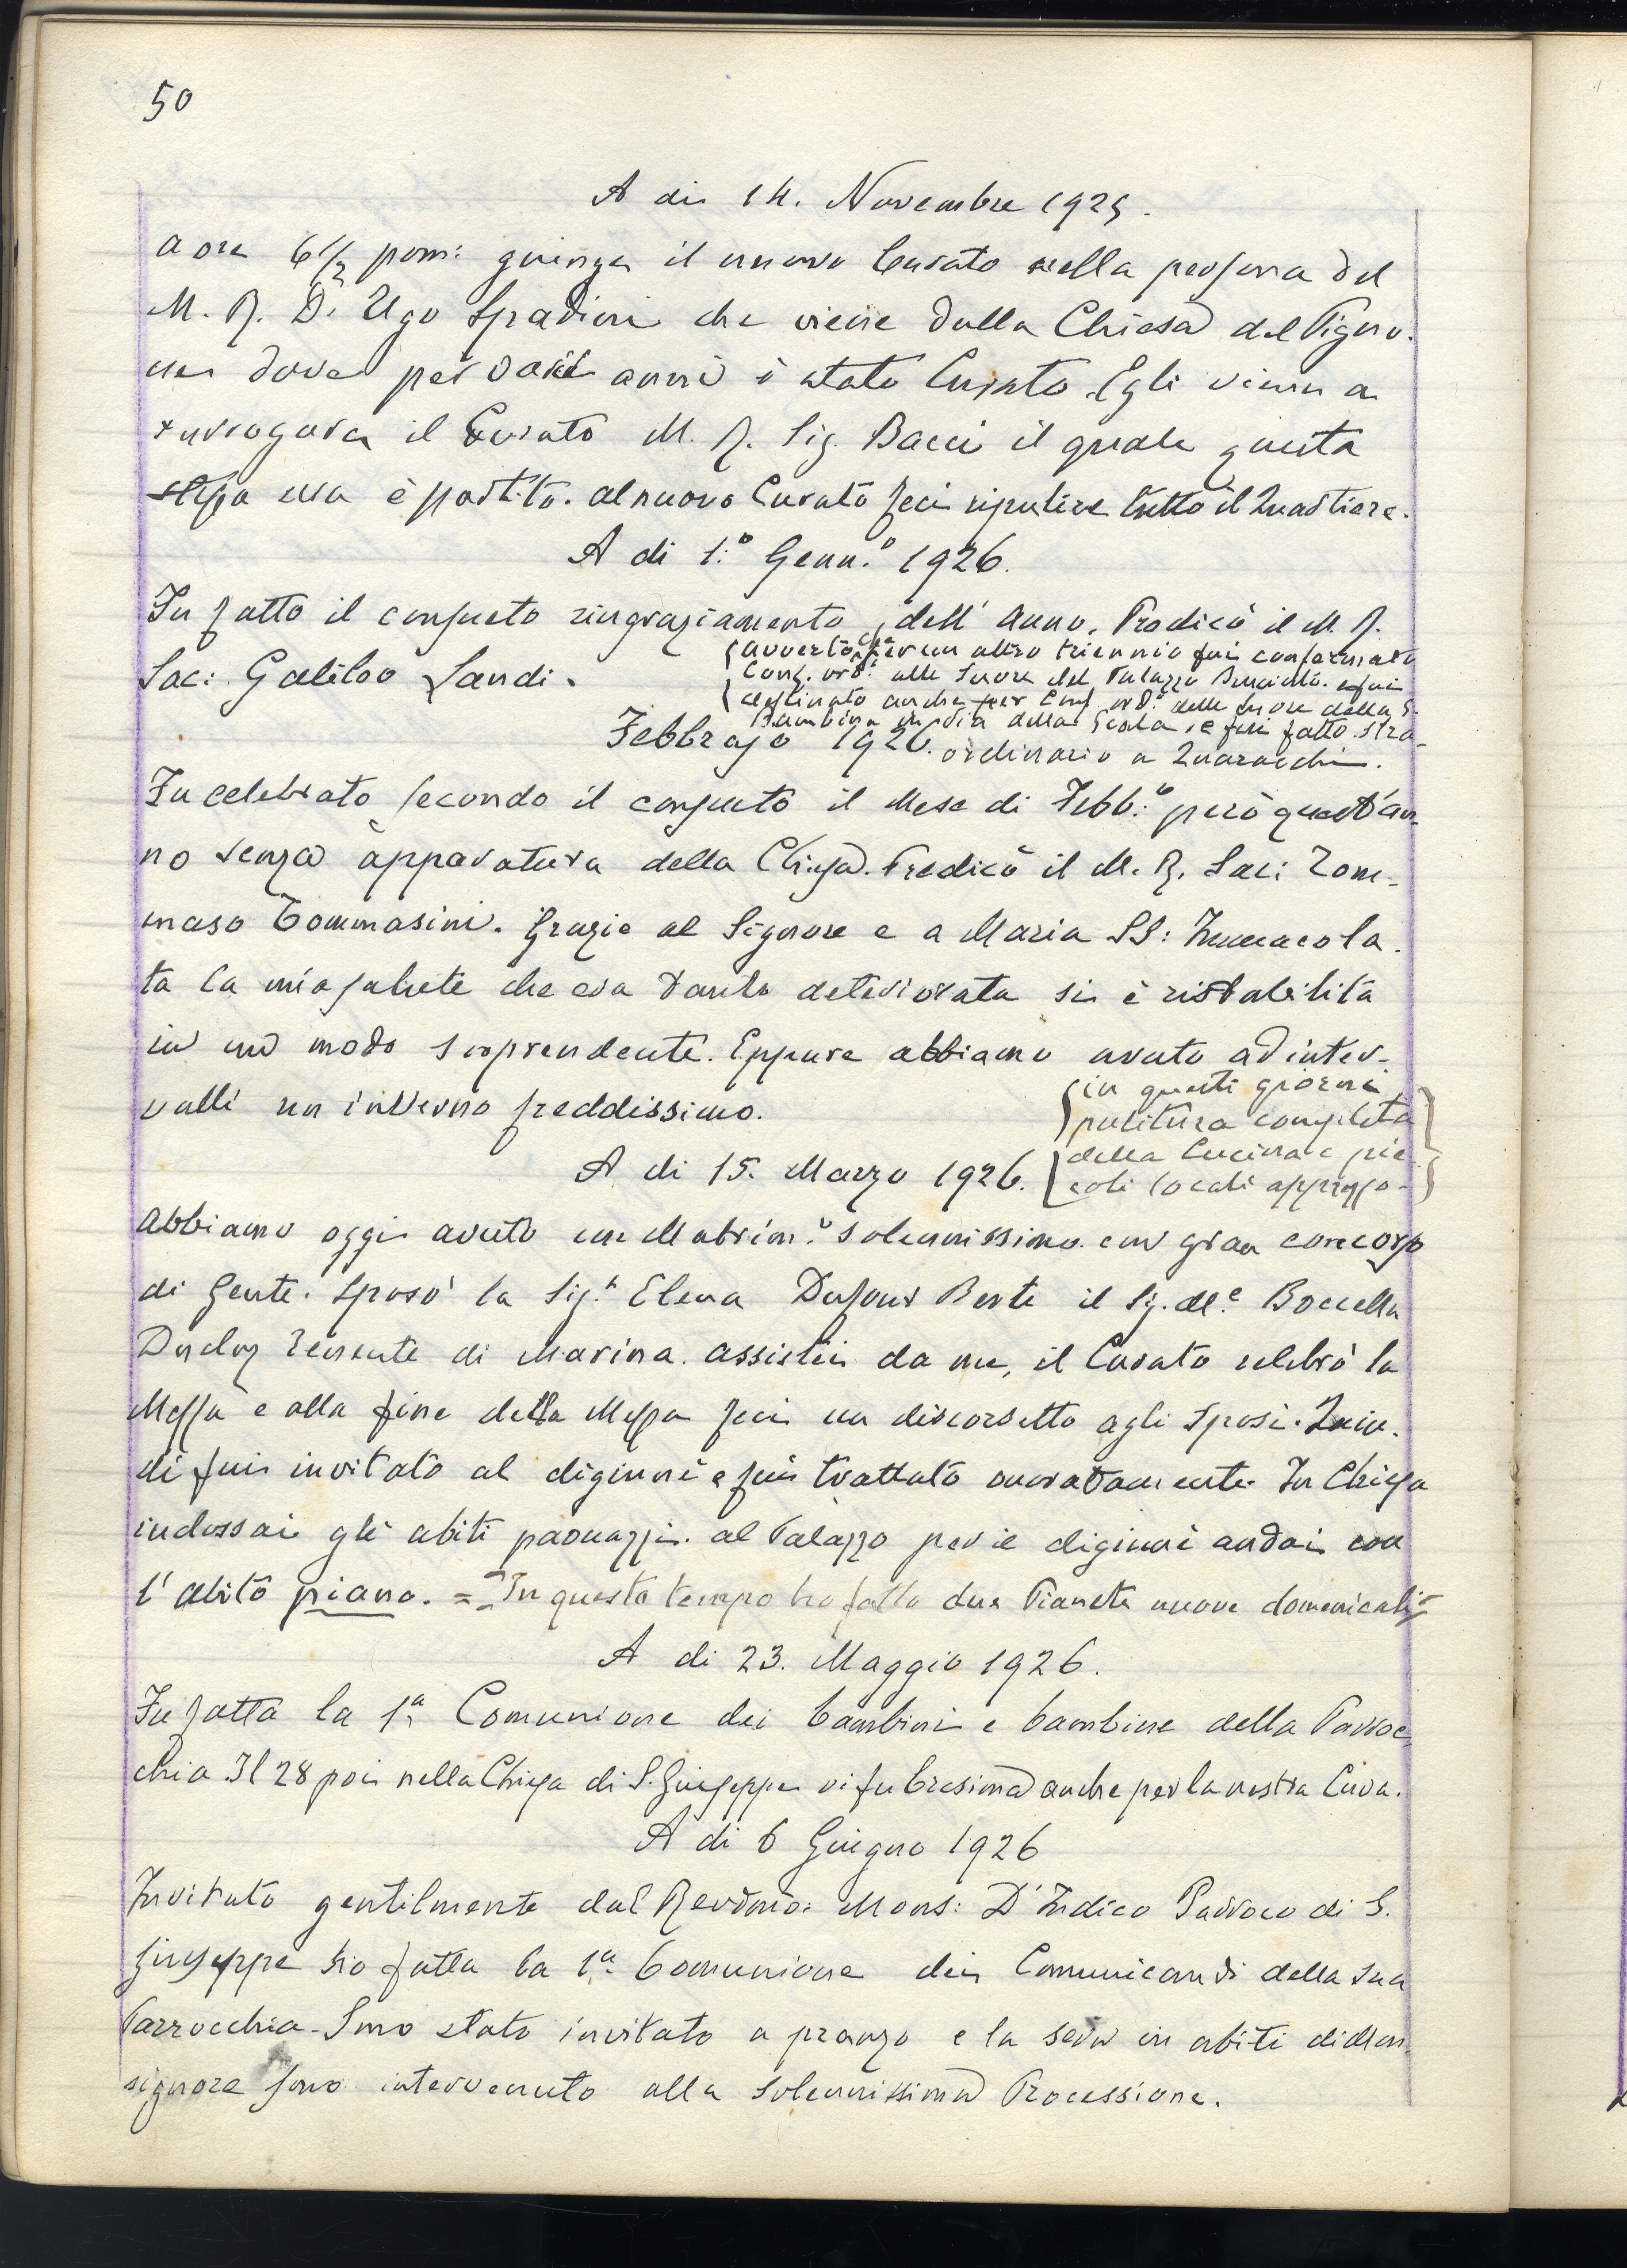 50
A di 14. Novembre 1925.
a ore 6 1/2 pom: giunge il nuovo Curato nella persona del
M. R. D. Ugo Spadini che viene dalla Chiesa del Pigno-
ne dove per varii anni è stato Curato. Egli viene a
surrogare il Curato M. R. Sig. Bacci il quale questa
stessa era è partito. al nuovo Curato feci ripulire tutto il Quartiere.
A di 1:° Genn.° 1926.
Fu fatto il consueto ringraziamento dell' Anno. Predicò il M. R.
Sac: Galileo Landi.
(avverto che per un altro triennio fui confermato
Conf. ord.° alle Suore del Palazzo e fui
destinato anche per Conf. ord.° delle Suore della S.
Bambina in Via della Scala, e fui fatto stra-
ordinario a Quaracchi.
Febbrajo 1926.
Fu celebrato secondo il consueto il Mese di Febb:° però quest'an-
no senza apparatura della Chiesa. Predicò il M. R. Sac: Tom-
maso Tommasini. Grazie al Signore e a Maria SS: Immacola-
ta la mia salute che era tanto deteriorata si è ristabilita
in un modo sorprendente. Eppure abbiamo avuto ad inter-
valli un inverno freddissimo.
(in questi giorni
pulitura completa
della Cucina e pic-
coli locali appresso-)
A di 15. Marzo 1926.
Abbiamo oggi avuto un Matrim.° solennissimo con gran concorso
di Gente. Sposò la Sig.ª Elena Dufour Berte il Sig. M.e Boccella
Tenente di Marina. assistei da me, il Curato celebrò la
Messa e alla fine della Messa feci un discorsetto agli Sposi. Quin-
di fui invitato al digiunè e fui trattato onoratamente. In Chiesa
indossai gli abiti paonazzi. al Palazzo per il digiunè andai con
l' abito piano. = In questo tempo ho fatto due Pianete nuove domenicali =
A di 23. Maggio 1926.
Fu fatta la 1ª Comunione dei bambini e bambine della Parroc-
chia Il 28 poi nella Chiesa di S. Giuseppe vi fu Cresima anche per la nostra Cura.
A di 6 Giugno 1926
Invitato gentilmente dal Revdmo: Mons: D'Indico Parroco di S.
Giuseppe ho fatta la 1ª Comunione dei Comunicandi della sua
Parrocchia. Sono stato invitato a pranzo e la sera in abiti di Mon-
signore sono intervenuto alla solennissima Processione.